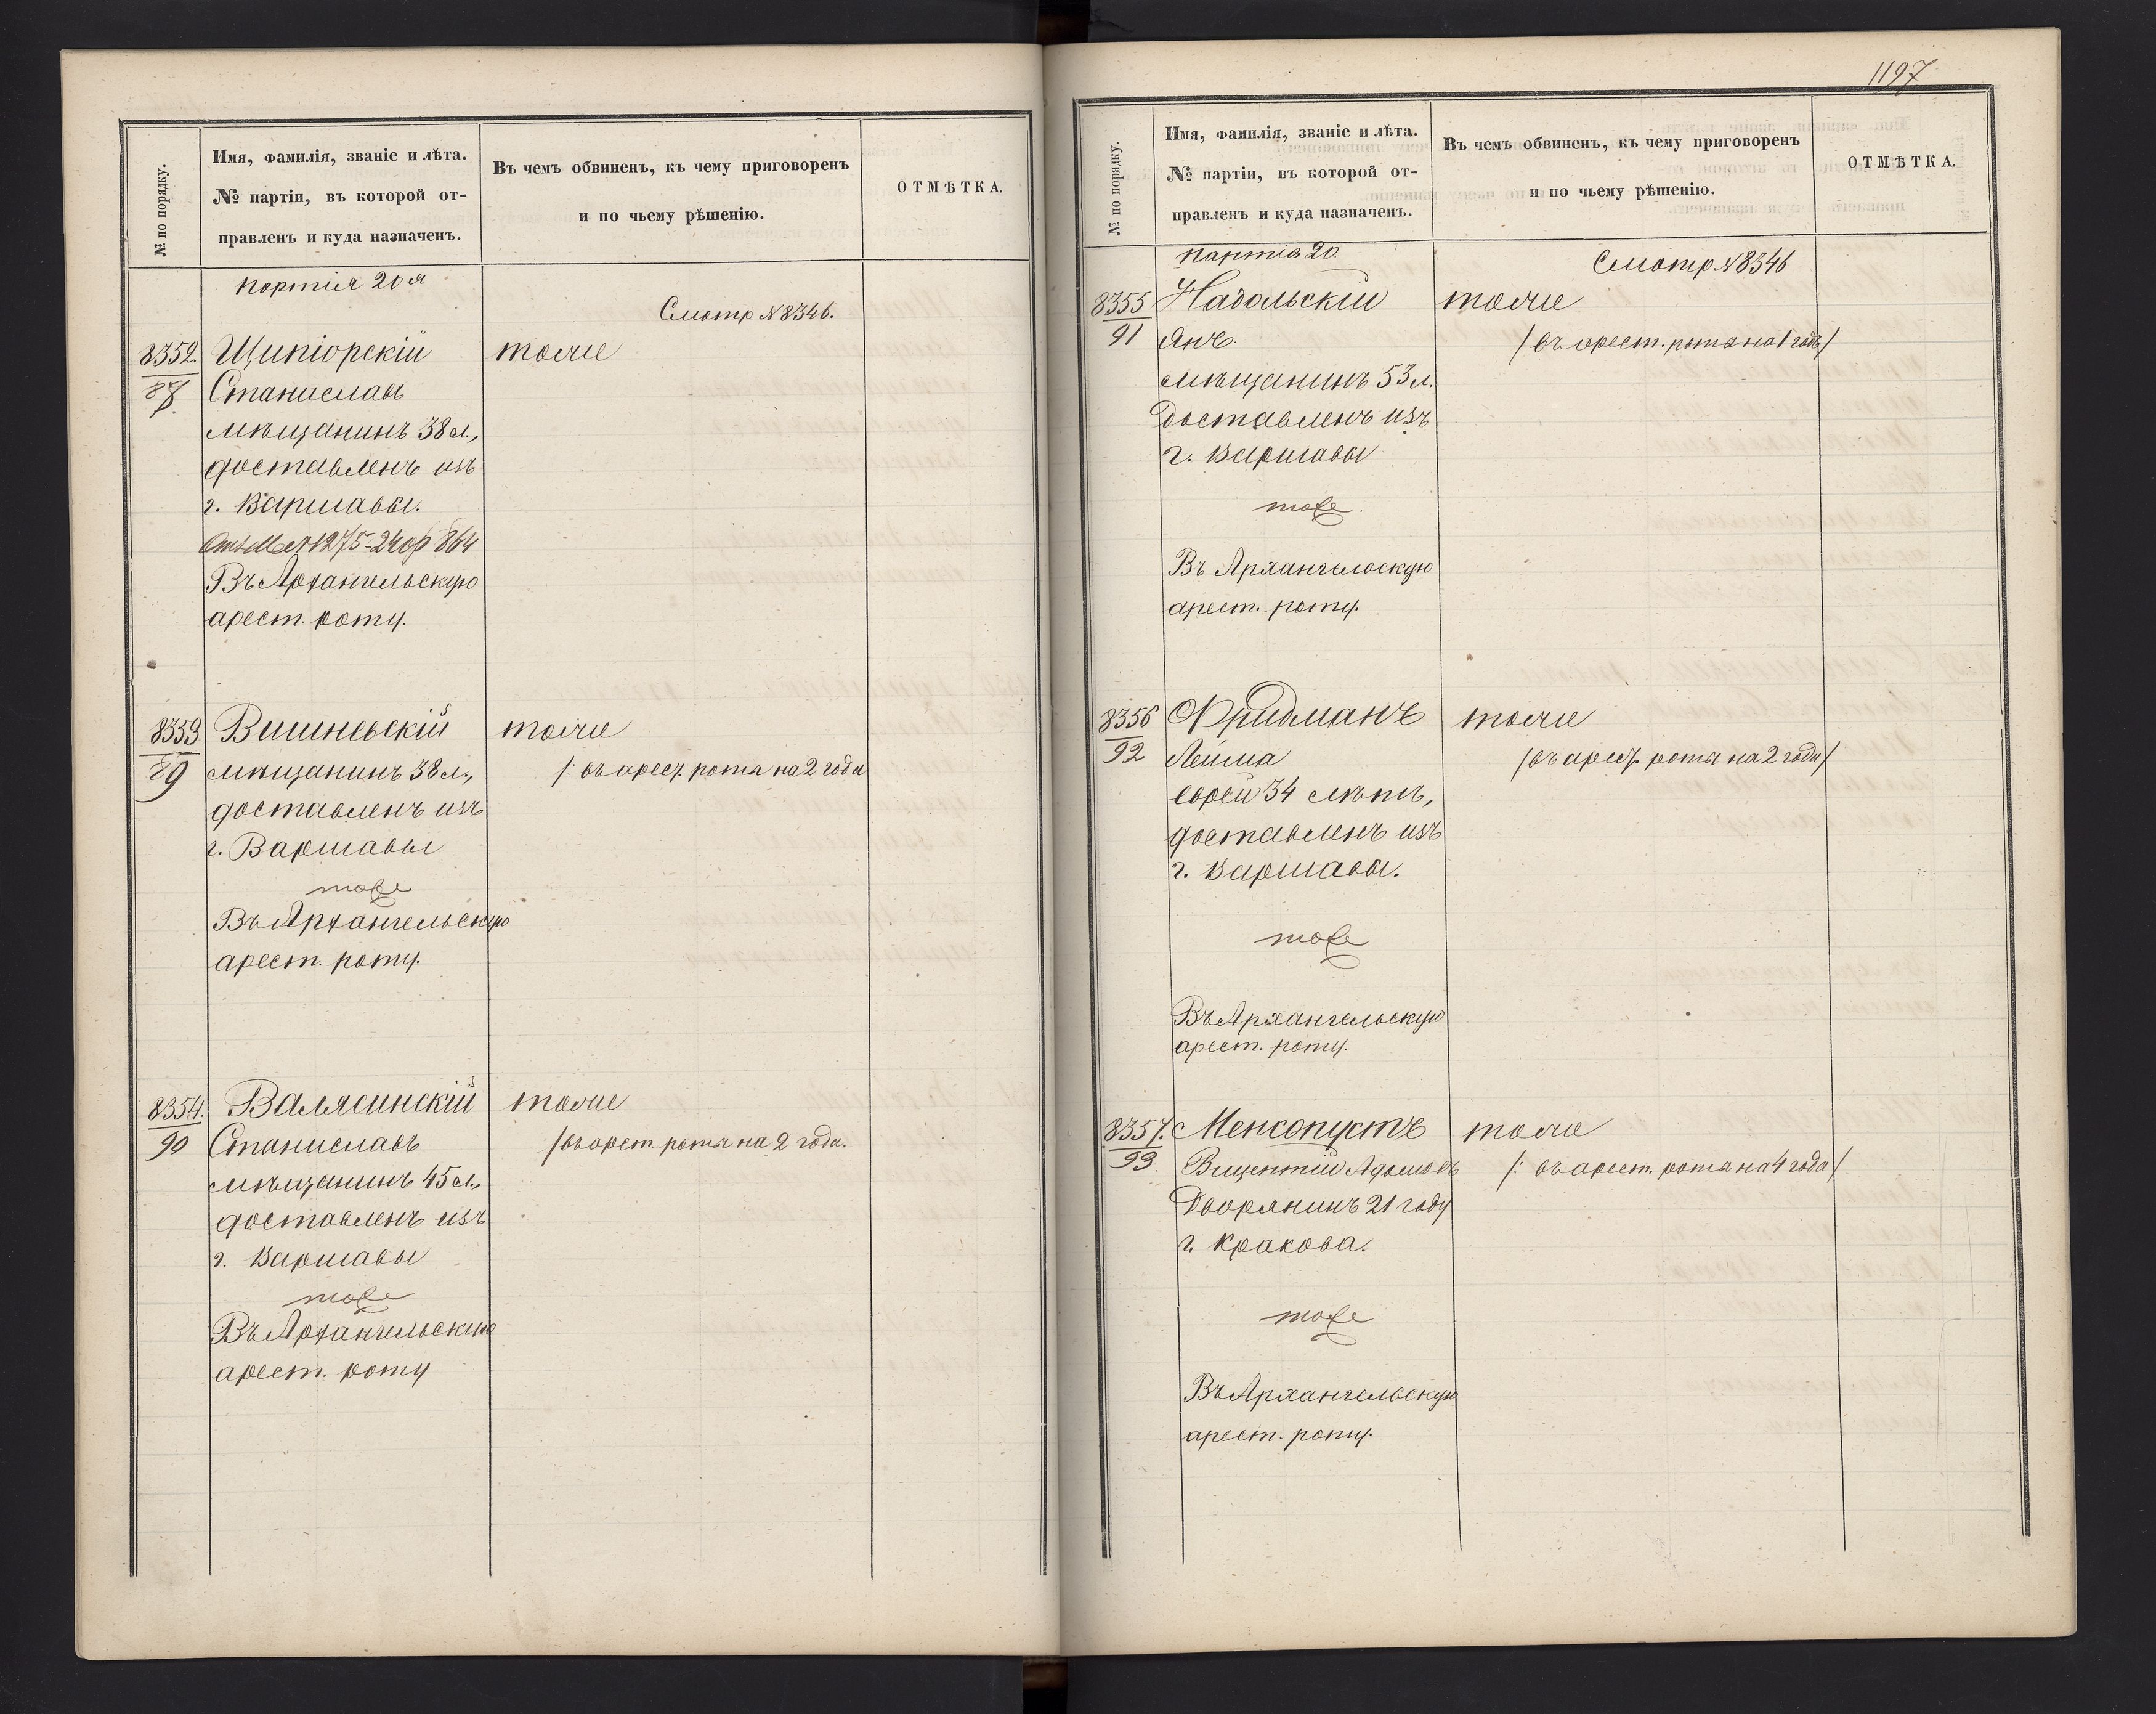 № по порядку.
Имя, фамилія, званіе и лѣта.
№ партіи, въ которой от-
правленъ и куда назначенъ.
Въ чемъ обвиненъ, къ чему приговоренъ
и по чьему рѣшенію.
ОТМѢТКА.
партія 20я
Смотр №8346.
8352.
88
Щипіорскій
Станиславъ
мѣщанинъ 38 л.,
доставленъ изъ
г. Варшавы.
1275 - 864
Въ Архангельскую
арест. роту.
тоже
8353
89
Вишневскій
мѣщанинъ 38 л.,
доставленъ изъ
г. Варшавы
тоже
Въ Архангельскую
арест. роту.
тоже
/: въ арест. роты на 2 года
8354.
90
Валясинскій
Станиславъ
мѣщанинъ 45 л.,
доставленъ изъ
г. Варшавы
тоже
Въ Архангельскую
арест. роту
тоже
/въ арест. роты на 2 года.
1197
№ по порядку.
Имя, фамилія, званіе и лѣта.
№ партіи, въ которой от-
правленъ и куда назначенъ.
Въ чемъ обвиненъ, къ чему приговоренъ
и по чьему рѣшенію.
ОТМѢТКА.
партія 20
Смотр №8346
8355
91
Надольскій
Янъ.
мѣщанинъ 53 л.
доставленъ изъ
г. Варшавы
тоже.
Въ Архангельскую
арест. роту.
тоже
/въ арест. роты на 1 годъ/
8356
92
Фридманъ
Лейма
еврей 34 лѣтъ,
доставленъ изъ
г. Варшавы.
тоже
Въ Архангельскую
арест. роту.
тоже
/въ арест. роты на 2 года/
8357.
93.
Менсопустъ
Вицентій Адамовъ
Дворянинъ 21 году
г. Кракова.
тоже
Въ Архангельскую
арест. роту.
тоже
/: въ арест. роты на 4 года/